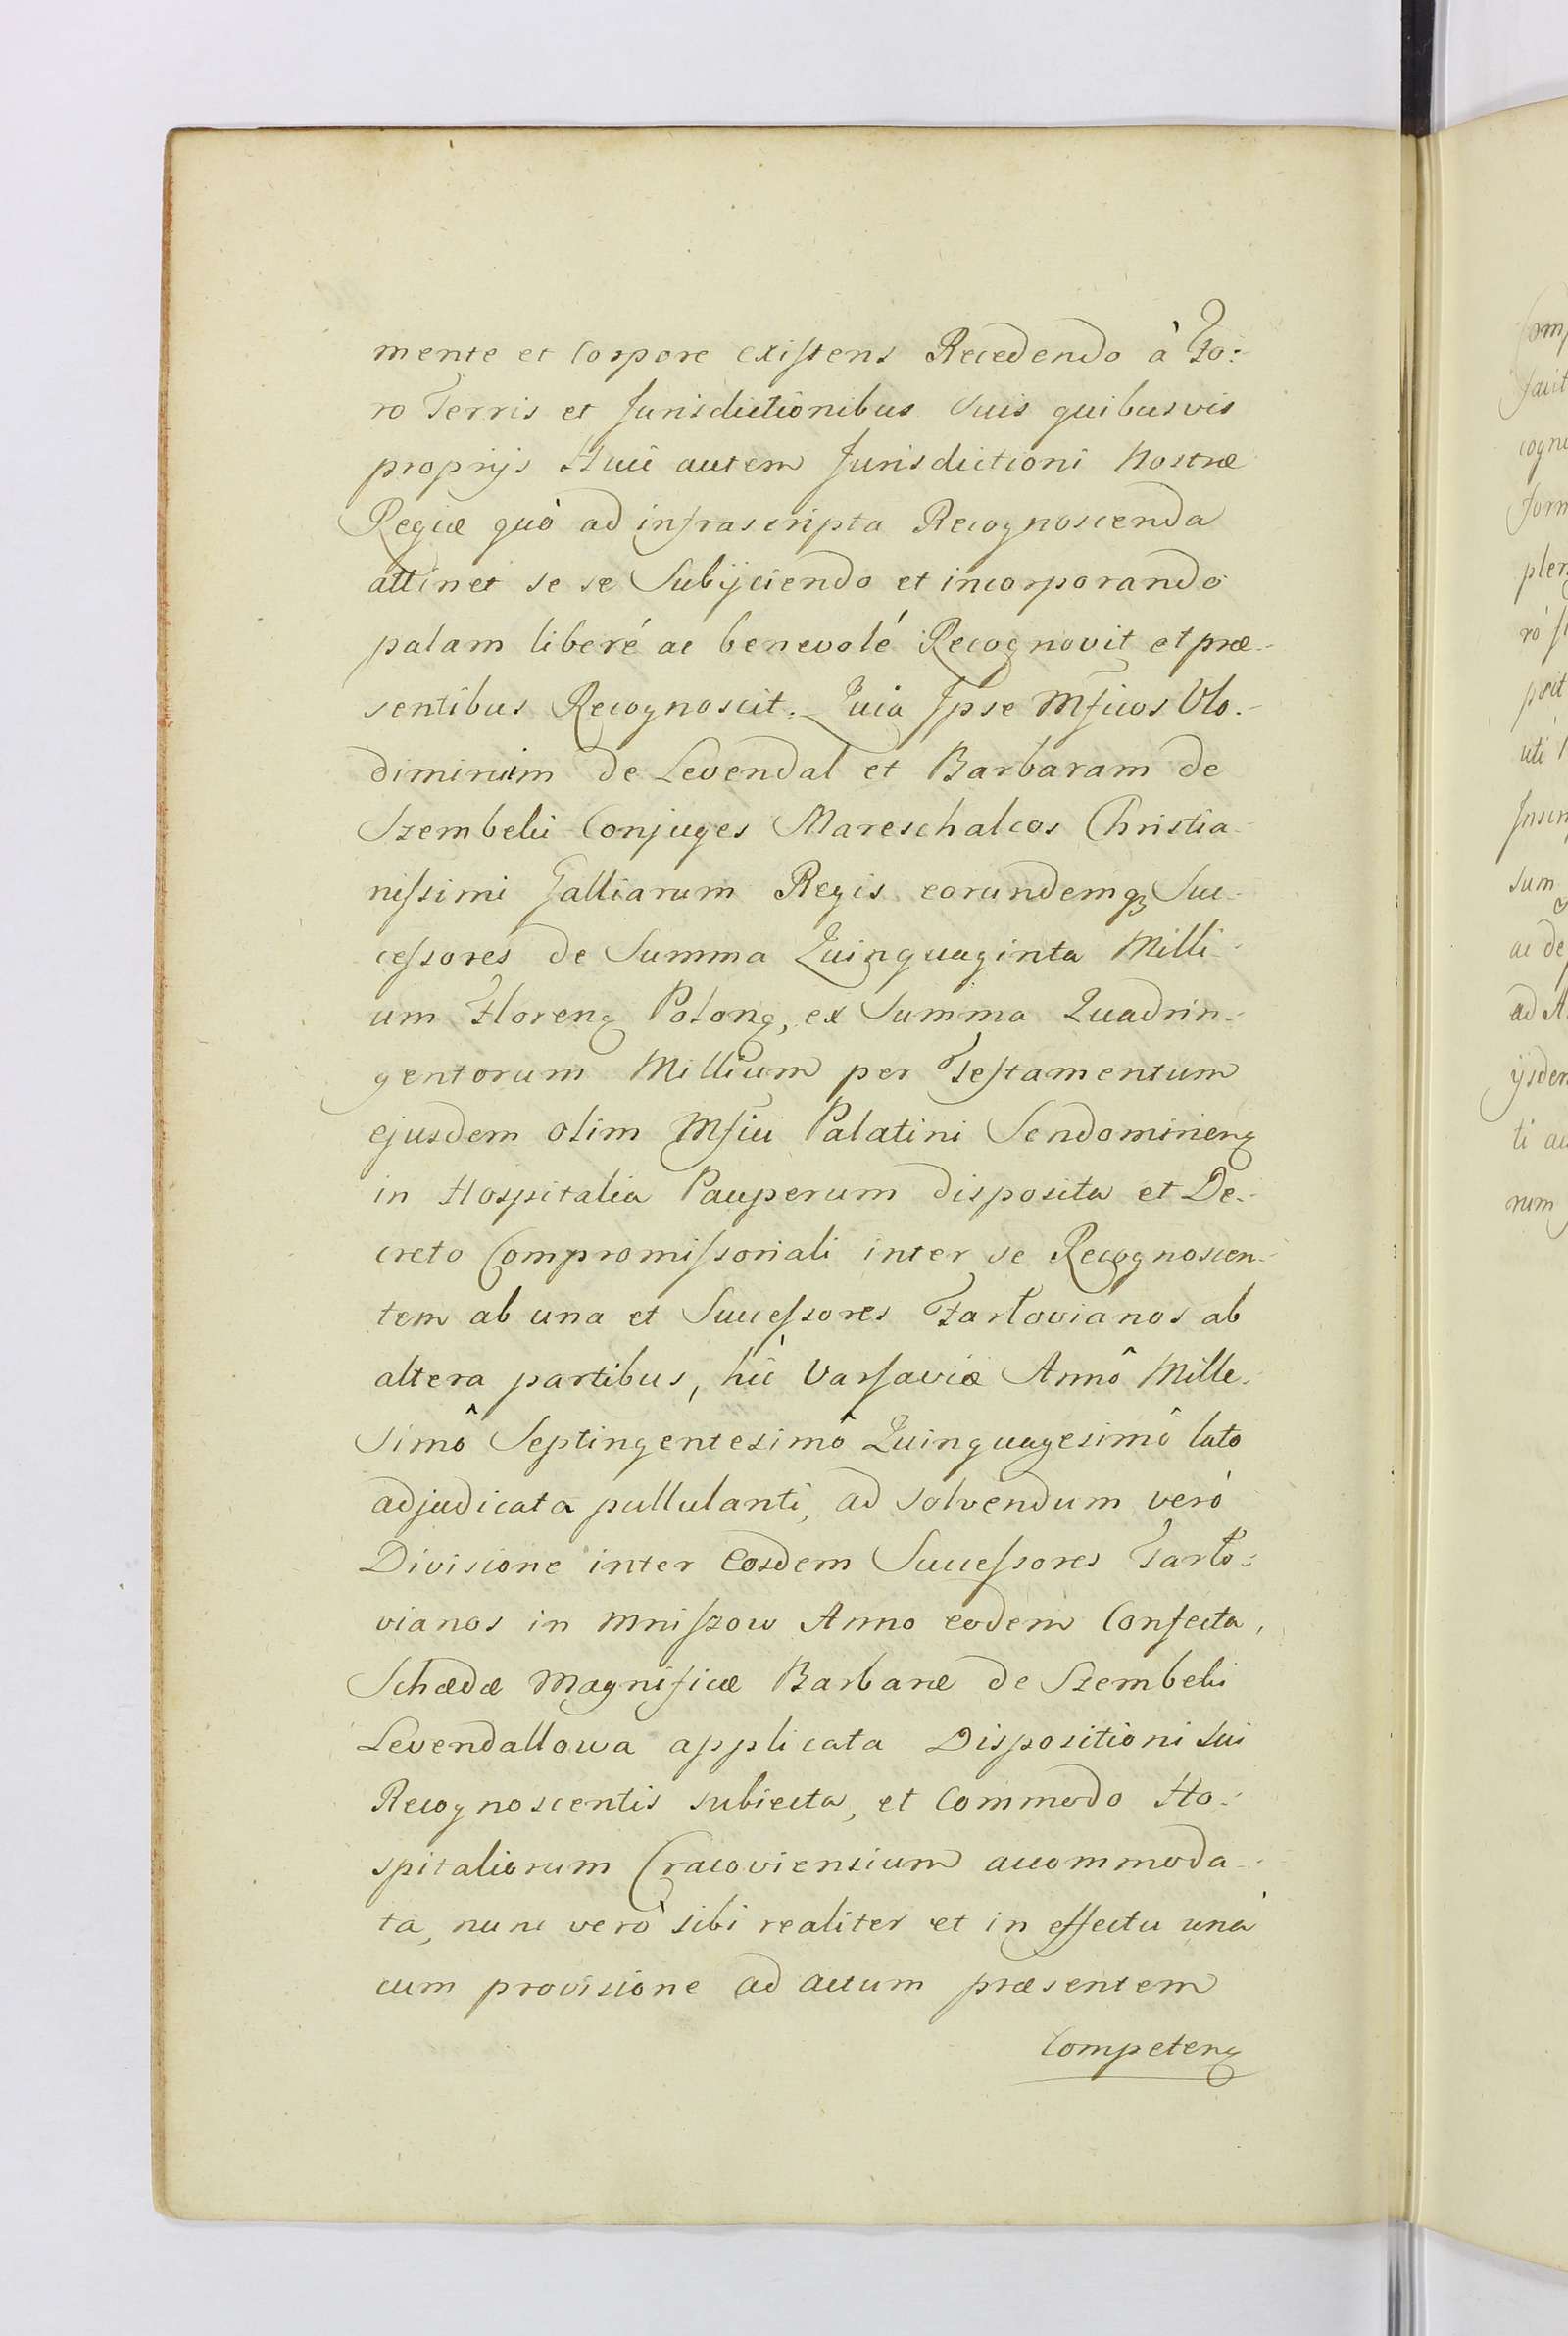 mente et Corpore existens Recedendo à Fo:
ro Terris et Jurisdictionibus Suis quibusvis
proprijs Huic autem Jurisdictioni Nostræ
Regiæ quò ad infrascripta Recognoscenda
attinet se se Subijciendo et incorporando
palam liberé ac benevolé Recognovit et præ-
sentibus Recognoscit. Quia Ipse Mficos Vlo-
dimirum de Levendal et Barbaram de
Szembeki Conjuges Mareschalcos Christia-
nissimi Galliarum Regis eorundemq3 Suc-
cessores de Summa Quinquaginta Milli-
um Floren̄ Polon̄, ex Summa Quadrin-
gentorum Millium per Testamentum
ejusdem olim Mfici Palatini Sendomirien̄
in Hospitalia Pauperum disposita et De-
creto Compromissoriali inter se Recognoscen-
tem ab una et Successores Tarłovianos ab
altera partibus, hìc Varsaviæ Annô Mille-
simô Septingentesimô Quinquagesimô lato
adjudicata pullulanti, ad solvendum verò
Divisione inter Eosdem Successores Tarło-
vianos in Mniszow Anno eodem Confecta,
Schædæ Magnificæ Barbaræ de Szembeki
Levendallowa applicata Dispositioni Sui
Recognoscentis subiecta, et Commodo Ho-
spitaliorum Cracoviensium accommoda-
ta, nunc verò sibi realiter et in effectu unà
cum provisione ad actum præsentem
Competen̄